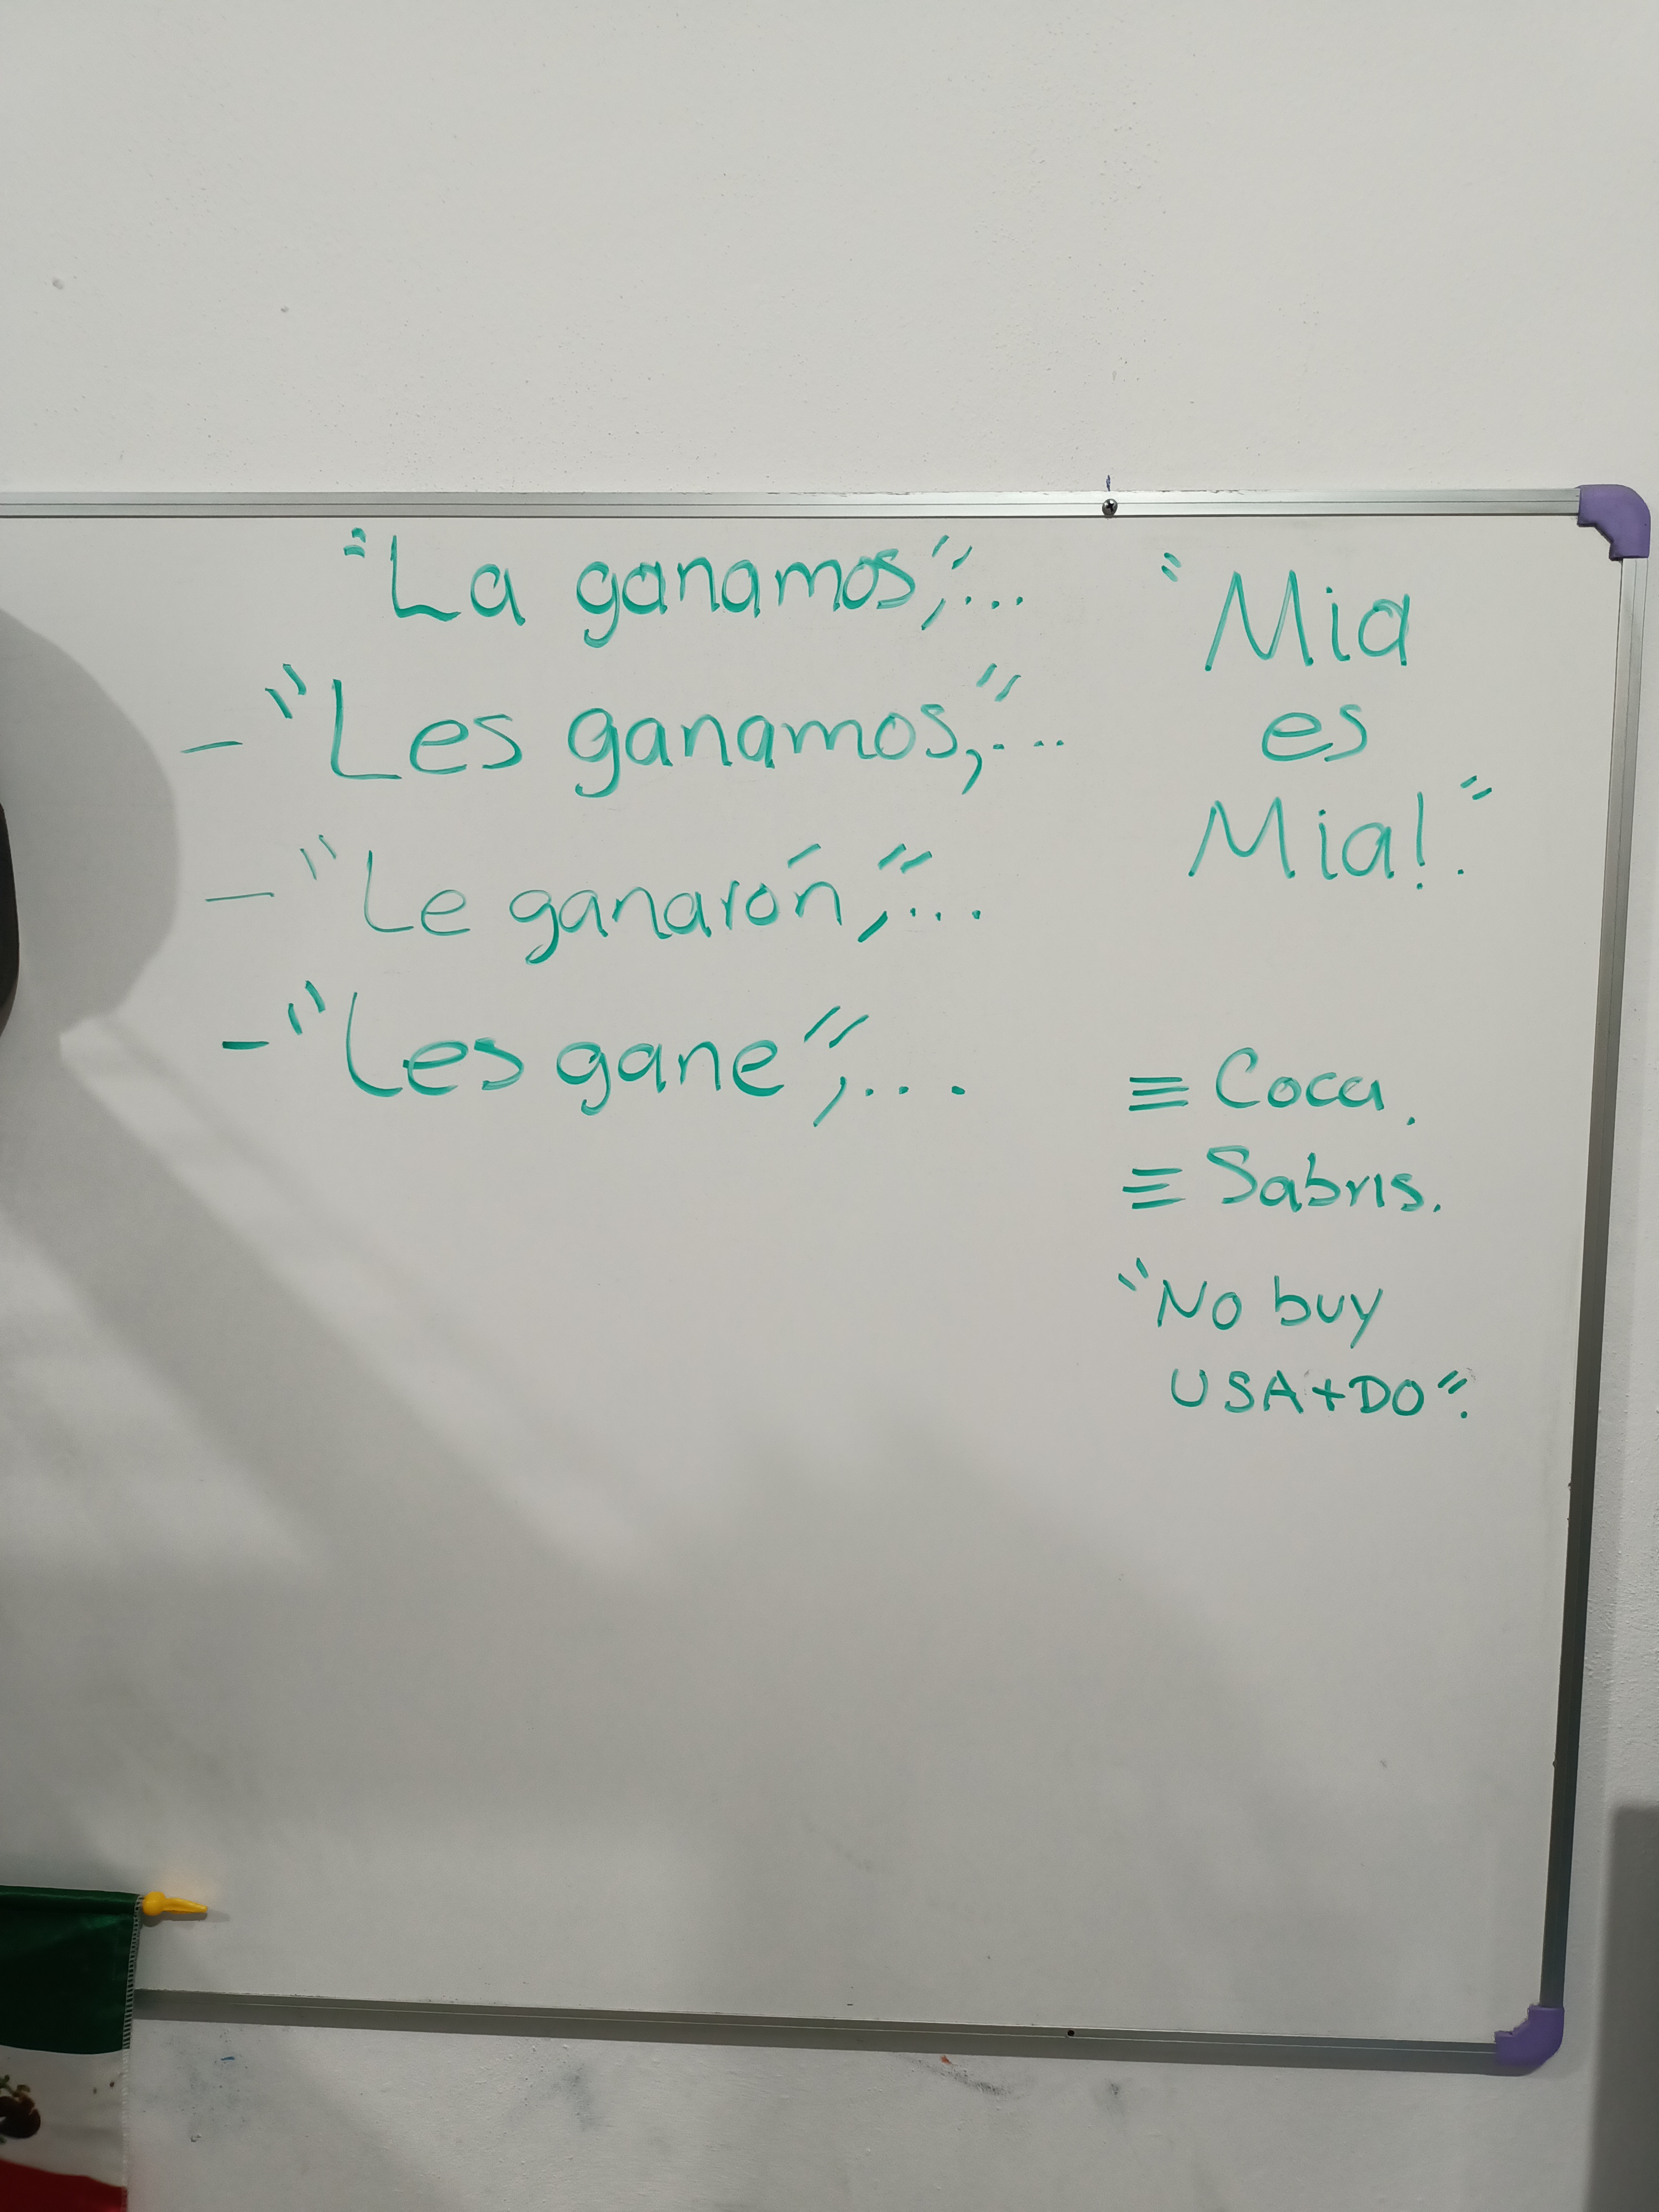 "La ganamos",...
- "Les ganamos",...
- "Le ganarón",...
- "Les gane",...
"Mia
es
Mia!".
≡ Coca.
≡ Sabris.
"No buy
USA+DO".